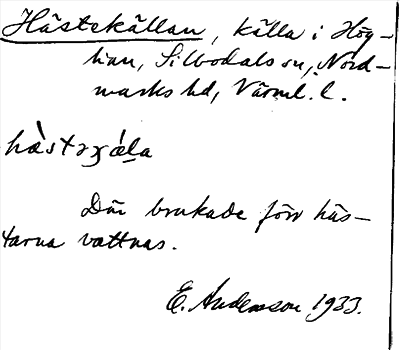 Hästekällan, källa i Hög-
han, Silbodals sn, Nord-
marks hd, Värml. l.
Där brukade förr häs-
tarna vattnas.
E. Anderson 1933.